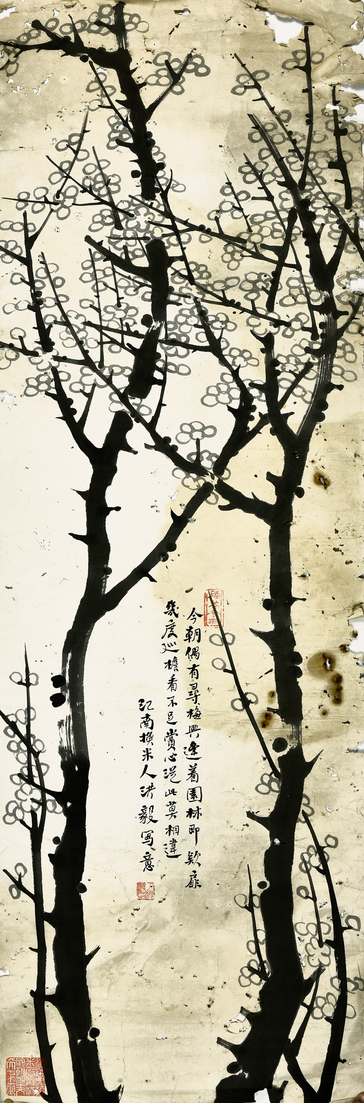 今朝偶有尋梅興逢着園林即欵扉
幾度巡檐看不足賞心從此莫相違
江南換米人洪毅寫意